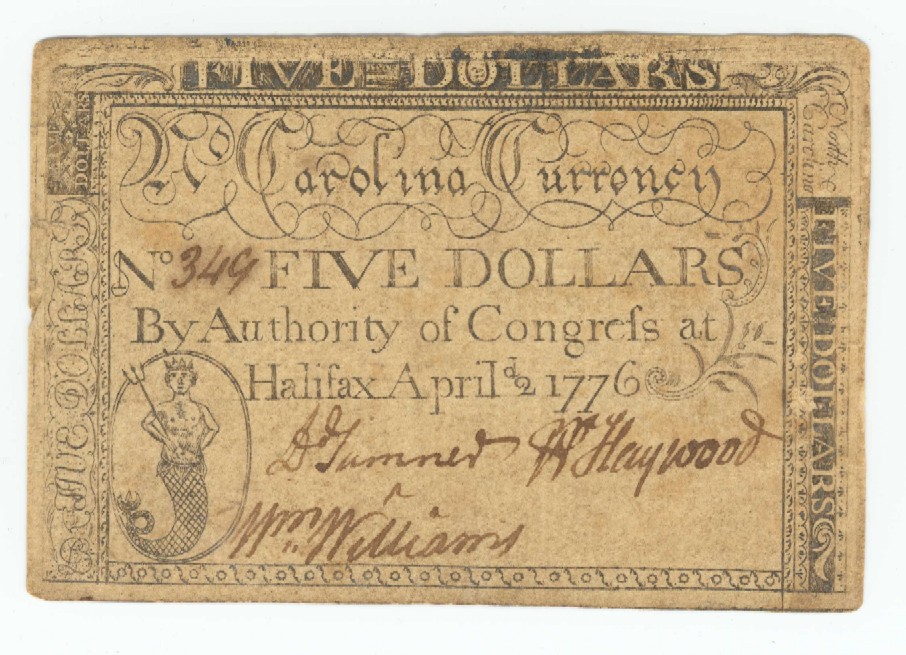 FIVE DOLLARS
FIVE DOLLARS
North Carolina
No Carolina Currency
No 349 FIVE DOLLARS
By Authority of Congreſs at
Halifax April d2 1776
Jd Sumner Wm Haywood
Wm Williams
FIVE DOLLARS
FIVE DOLLARS